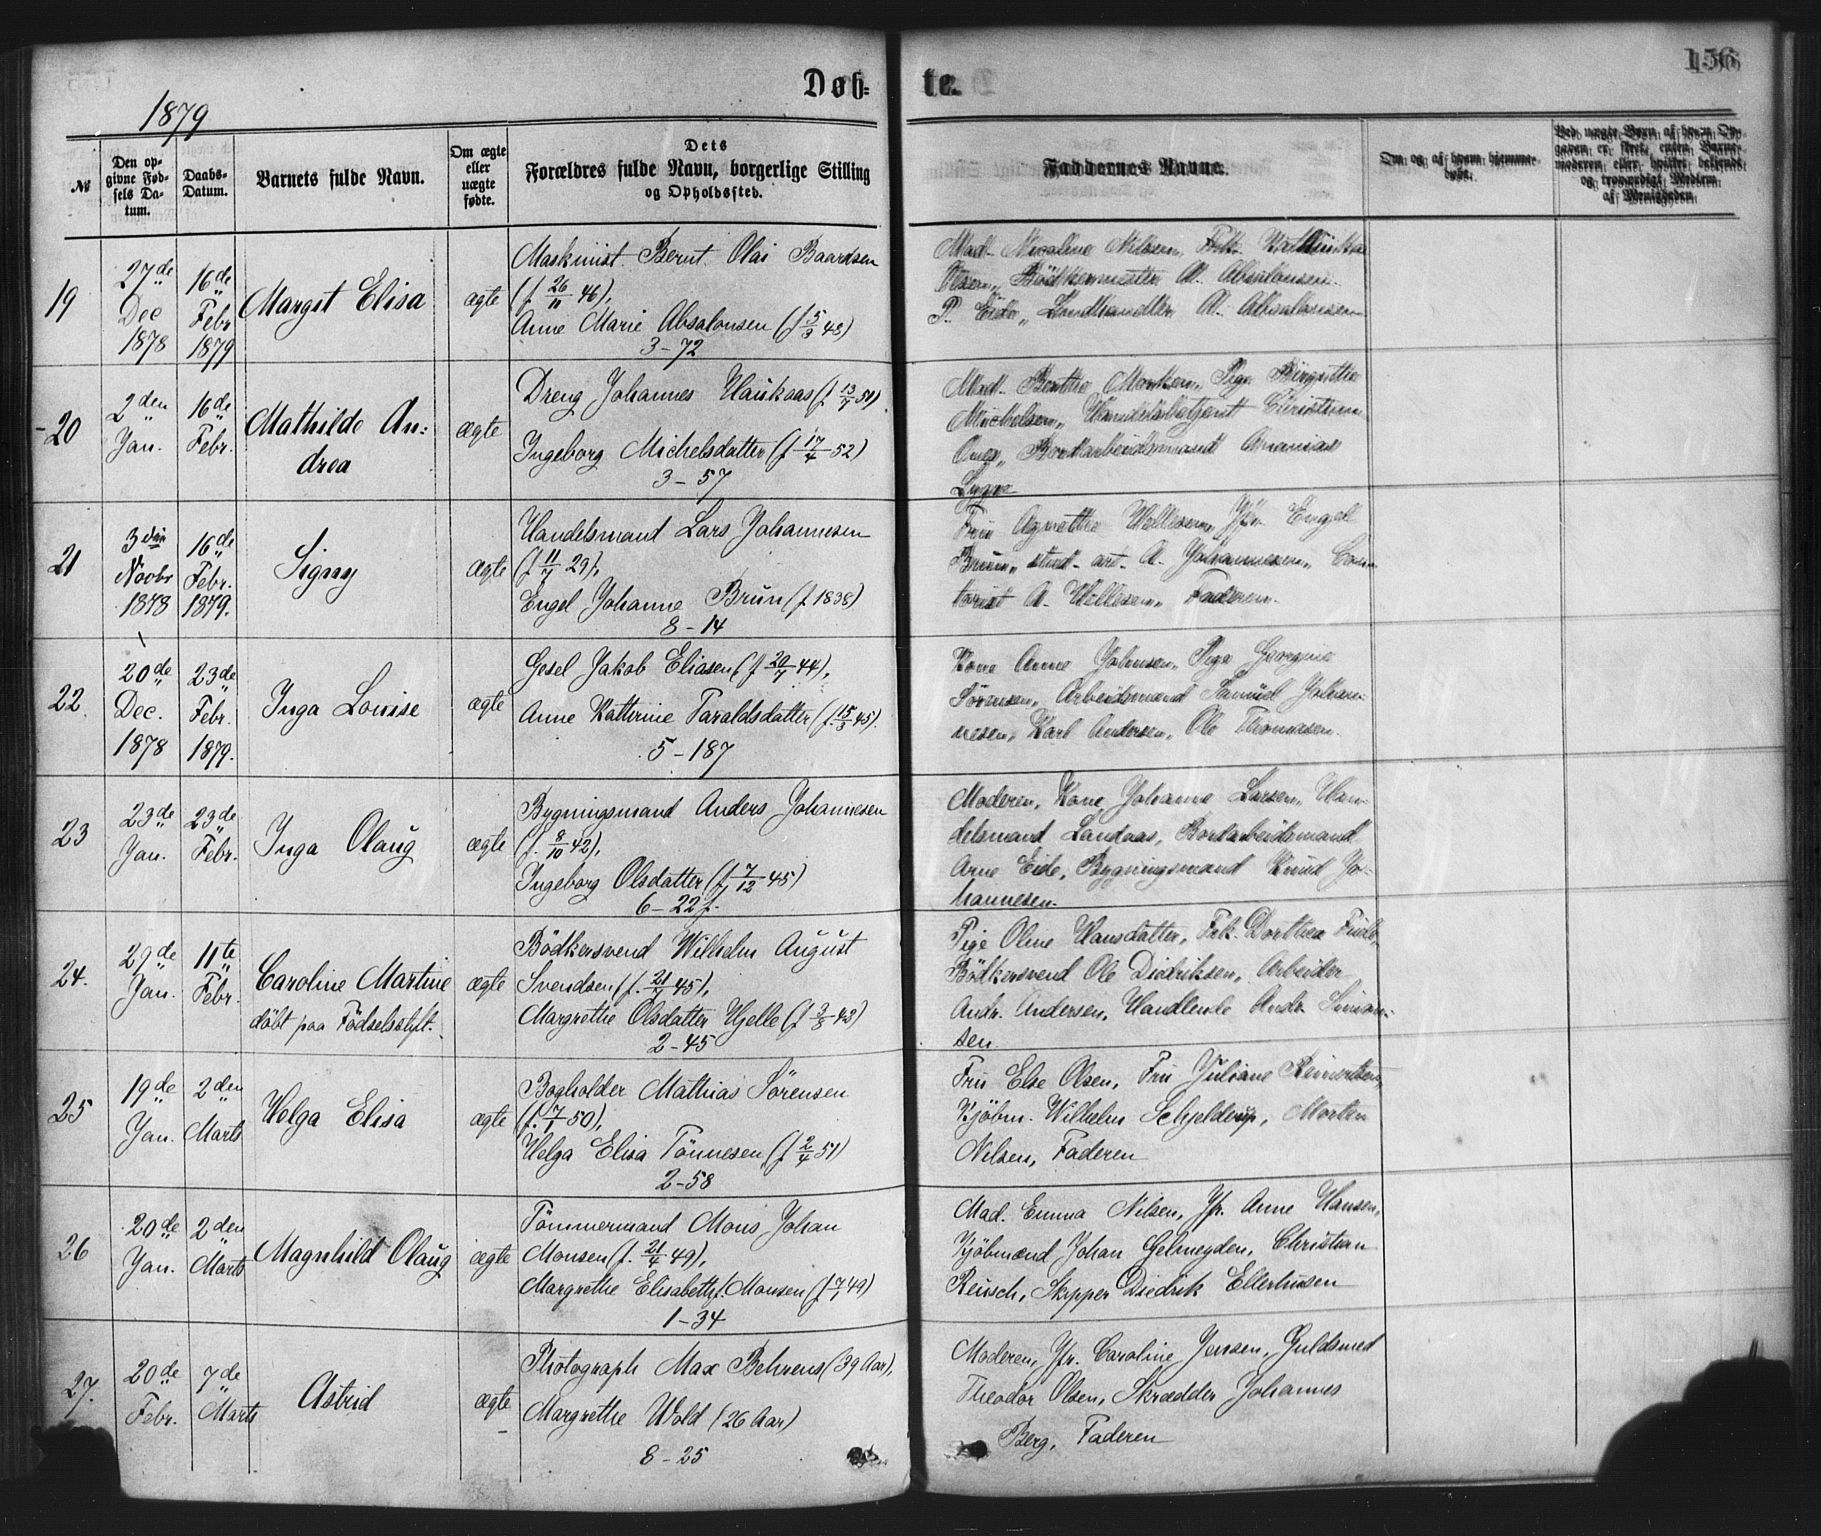 Døb-
te.
156
1879
№
Den op-
givne Fød-
sels Da-
tum.
Daabs-
Datum.
Barnets fulde Navn.
Om ægte
eller
uægte
fødte.
Dets
Forældres fulde Navn, borgerlige Stilling
og Opholdssted.
Faddernes Navne.
Om og af hvem hjemme-
døbt.
Ved uægte Børn af hvem Op-
gaven er sket, enten Barne-
moderen eller hvilket bekjendt
og troværdigt Medlem
af Menigheden
19
27de
Dec
1878
16de
Febr
1879
Margit Elisa
ægte
Maskinist Bernt Olai Baardsen
(f. 26/11 46),
Anne Marie Absalonsen (f 5/3 43)
3-72
Mad. Nicoline Nilsen, Frk. Kathinka
Olsen, Bödkermester A. Absalonsen
P. Eide, Landhandler A. Absalonsen
20
2den
Jan.
16de
Febr.
Mathilde An-
drea
ægte
Dreng Johannes Haukaas (f 13/7 51)
Ingeborg Michelsdatter (f 17/4 52)
3-57
Mad. Benthe Monsen, Pige Birgitthe
Michelsen, Handelsbetjent Christian
Bordarbeidsmand Ananias
Lygre
21
3die
Novbr
1878
16de
Febr.
1879.
Signy
ægte
Handelsmand Lars Johannesen
(f 11/7 29),
Engel Johanne Brun (f. 1838)
8-14
Fru Agnethe Wellesen, Jfr. Engel
Brun, stud. art. A. Johannesen, Con-
torist A. Wellesen, Faderen.
22.
20de
Dec.
1878
23de
Febr.
1879.
Inga Louise
ægte
Gesel Jakob Eliasen (f 20/7 44),
Anne Katterine Taraldsdatter (f. 15/3 45).
5-187
Kone Anne Johnsen, Pige Georgine
Sörensen, Arbeidsmand Samuel Johan-
nesen, Karl Andersen, Ole Thomasen.
23
23de
Jan.
23de
Febr.
Inga Olaug
ægte
Bygningsmand Anders Johannesen
(f. 8/10 42),
Ingeborg Olsdatter (f 7/12 45)
6-22f.
Moderen, Kone Johanne Larsen, Han-
delsmand Landaas, Bordarbeidsmand
Arne Eide, Bygningsmand Knud Jo-
hannesen.
24.
29de
Jan.
11te
Febr.
Caroline Martine
döbt paa Födselsstift.
ægte
Bödkersvend Wilhelm August
Svendsen (f. 21/7 45),
Margrethe Olsdatter Hjelle (f 3/8 43)
2-45
Pige Oline Hansdatter, Frk. Dorthea Friele,
Bödkersvend Ole Diedriksen, Arbeider
Andr. Andersen, Handlende Andr. Simon-
sen.
25
19de
Jan.
2den
Marts
Helga Elisa
ægte
Bogholder Mathias Sörensen
(f. 7/1 50),
Helga Elisa Tönnesen (f 2/4 51)
2-58
Fru Else Olsen, Fru Juliane Reimertsen,
Kjöbm. Wilhelm Schjelderup, Morten
Nilsen, Faderen
26
20de
Jan.
2den
Marts
Magnhild Olaug
ægte
Tömmermand Mons Johan
Monsen (f. 21/4 49),
Margrethe Elisabeth f. Monsen (f 7/1 49)
1-34
Mad. Emma Nilsen, Jfr. Anne Hansen,
Kjöbmænd Johan Gelmeyden, Christian
Reusch, Skipper Diedrik Ellerhusen
27.
20de
Febr.
7de
Marts
Astrid
ægte
Photograph Max Behrens (39 Aar),
Margrethe Wold (26 Aar)
8-25
Moderen, Jfr. Caroline Jensen, Guldsmed
Theodor Olsen, Skrædder Johannes
Berg, Faderen